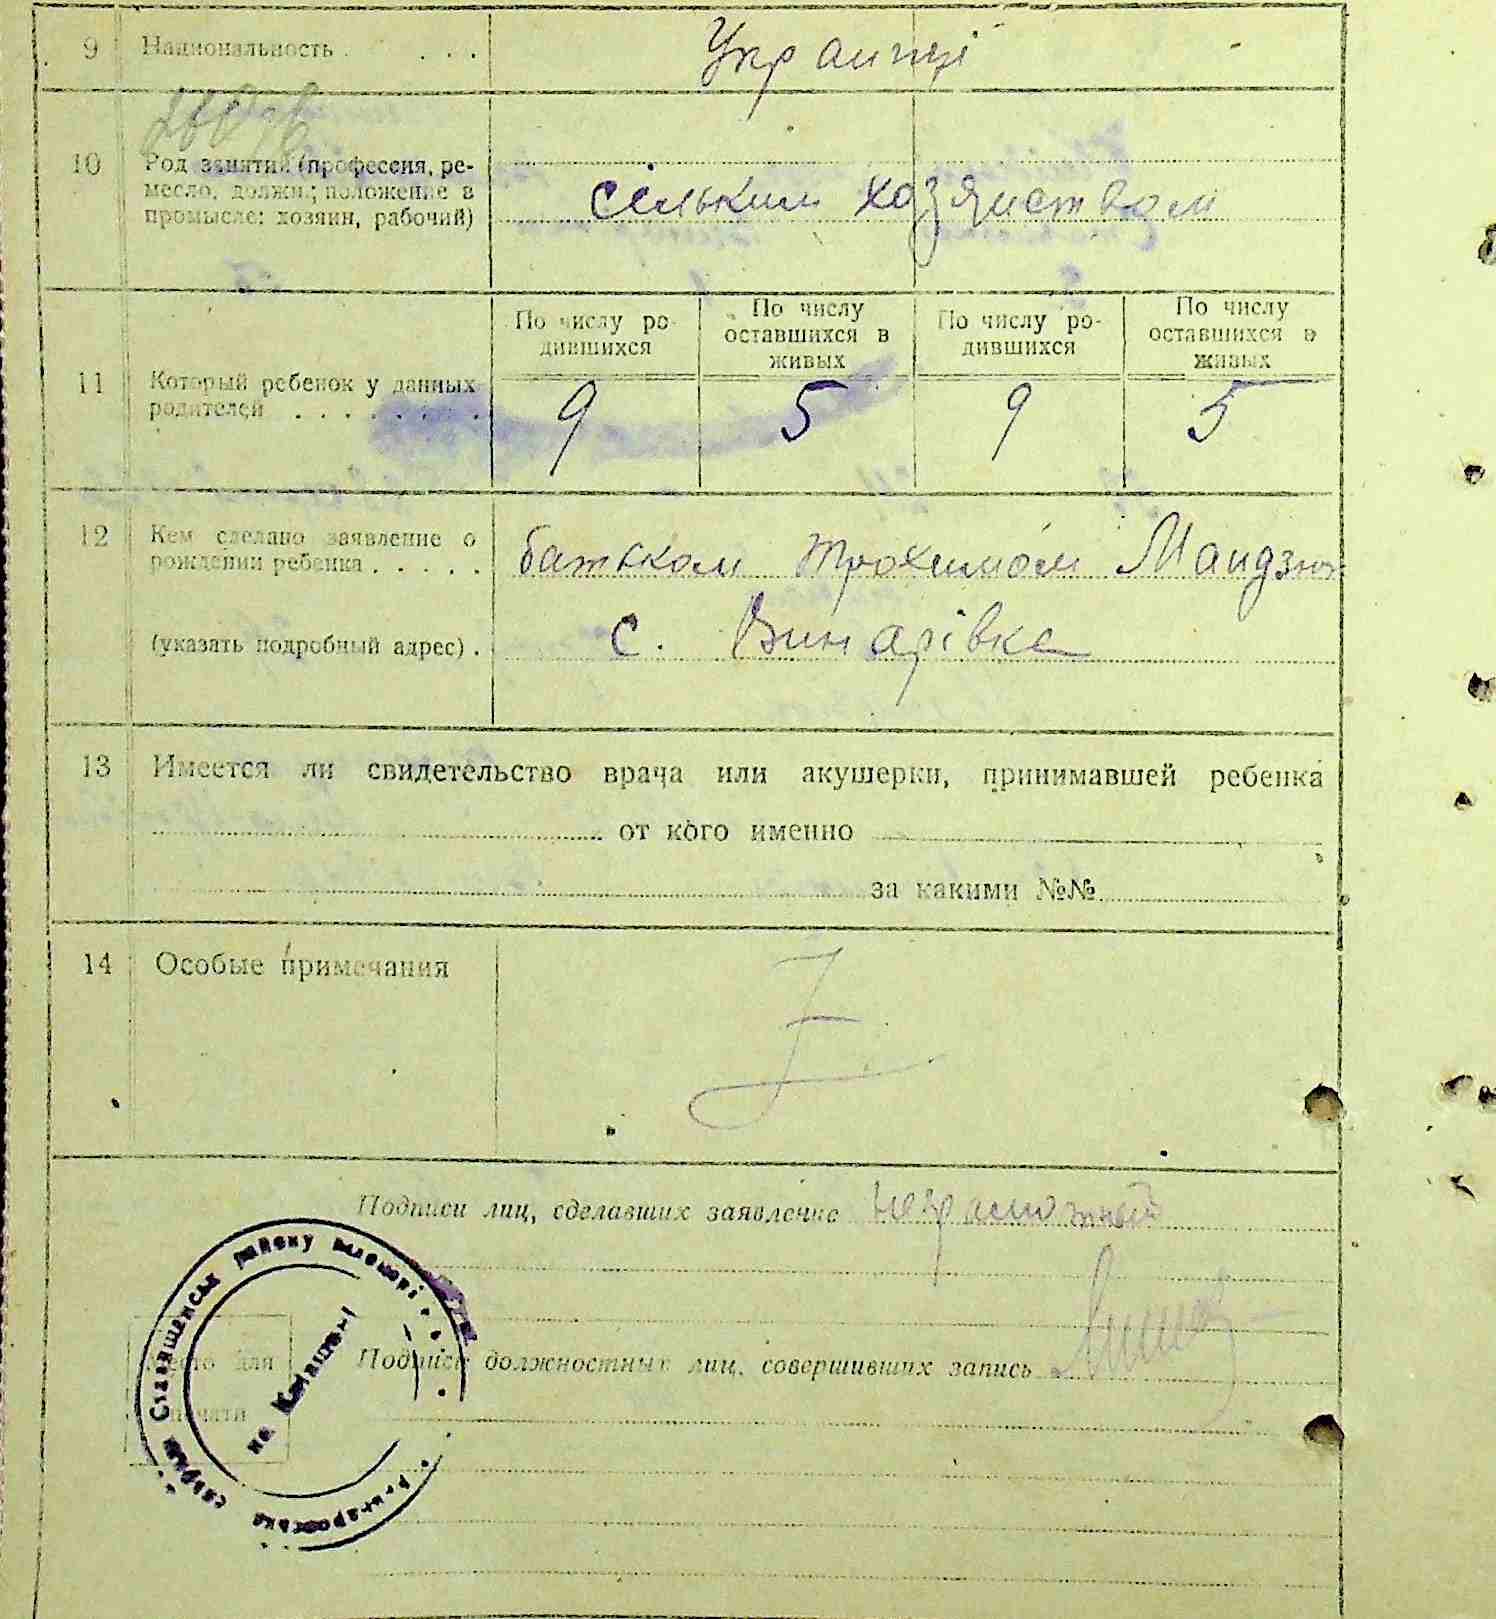 9 Национальность . . . . Украинці
10 Род занятий (профессия, ре-
месло, должн.; положение в
промысле: хозяин, рабочий)
сільким хозяиством
По числу ро-
дившихся
По числу
оставшихся в
живых
По числу ро-
дившихся
По числу
оставшихся в
живых
11 Который ребенок у данных
родителей . . . . . . . .
9 5 9 5
12 Кем сделано заявление о
рождении ребенка . . . . .
батьком Трохимом Мандзюк
(указать подробный адрес) . с. Винарівка
13 Имеется ли свидетельство врача или акушерки, принимавшей ребенка
от кого именно
за какими №№
14 Особые примечания
Подписи лиц, сделавших заявление неграмотный
Место для
печати
Подписи должностных лиц, совершивших запись
Ставищанськ району
на Київщині